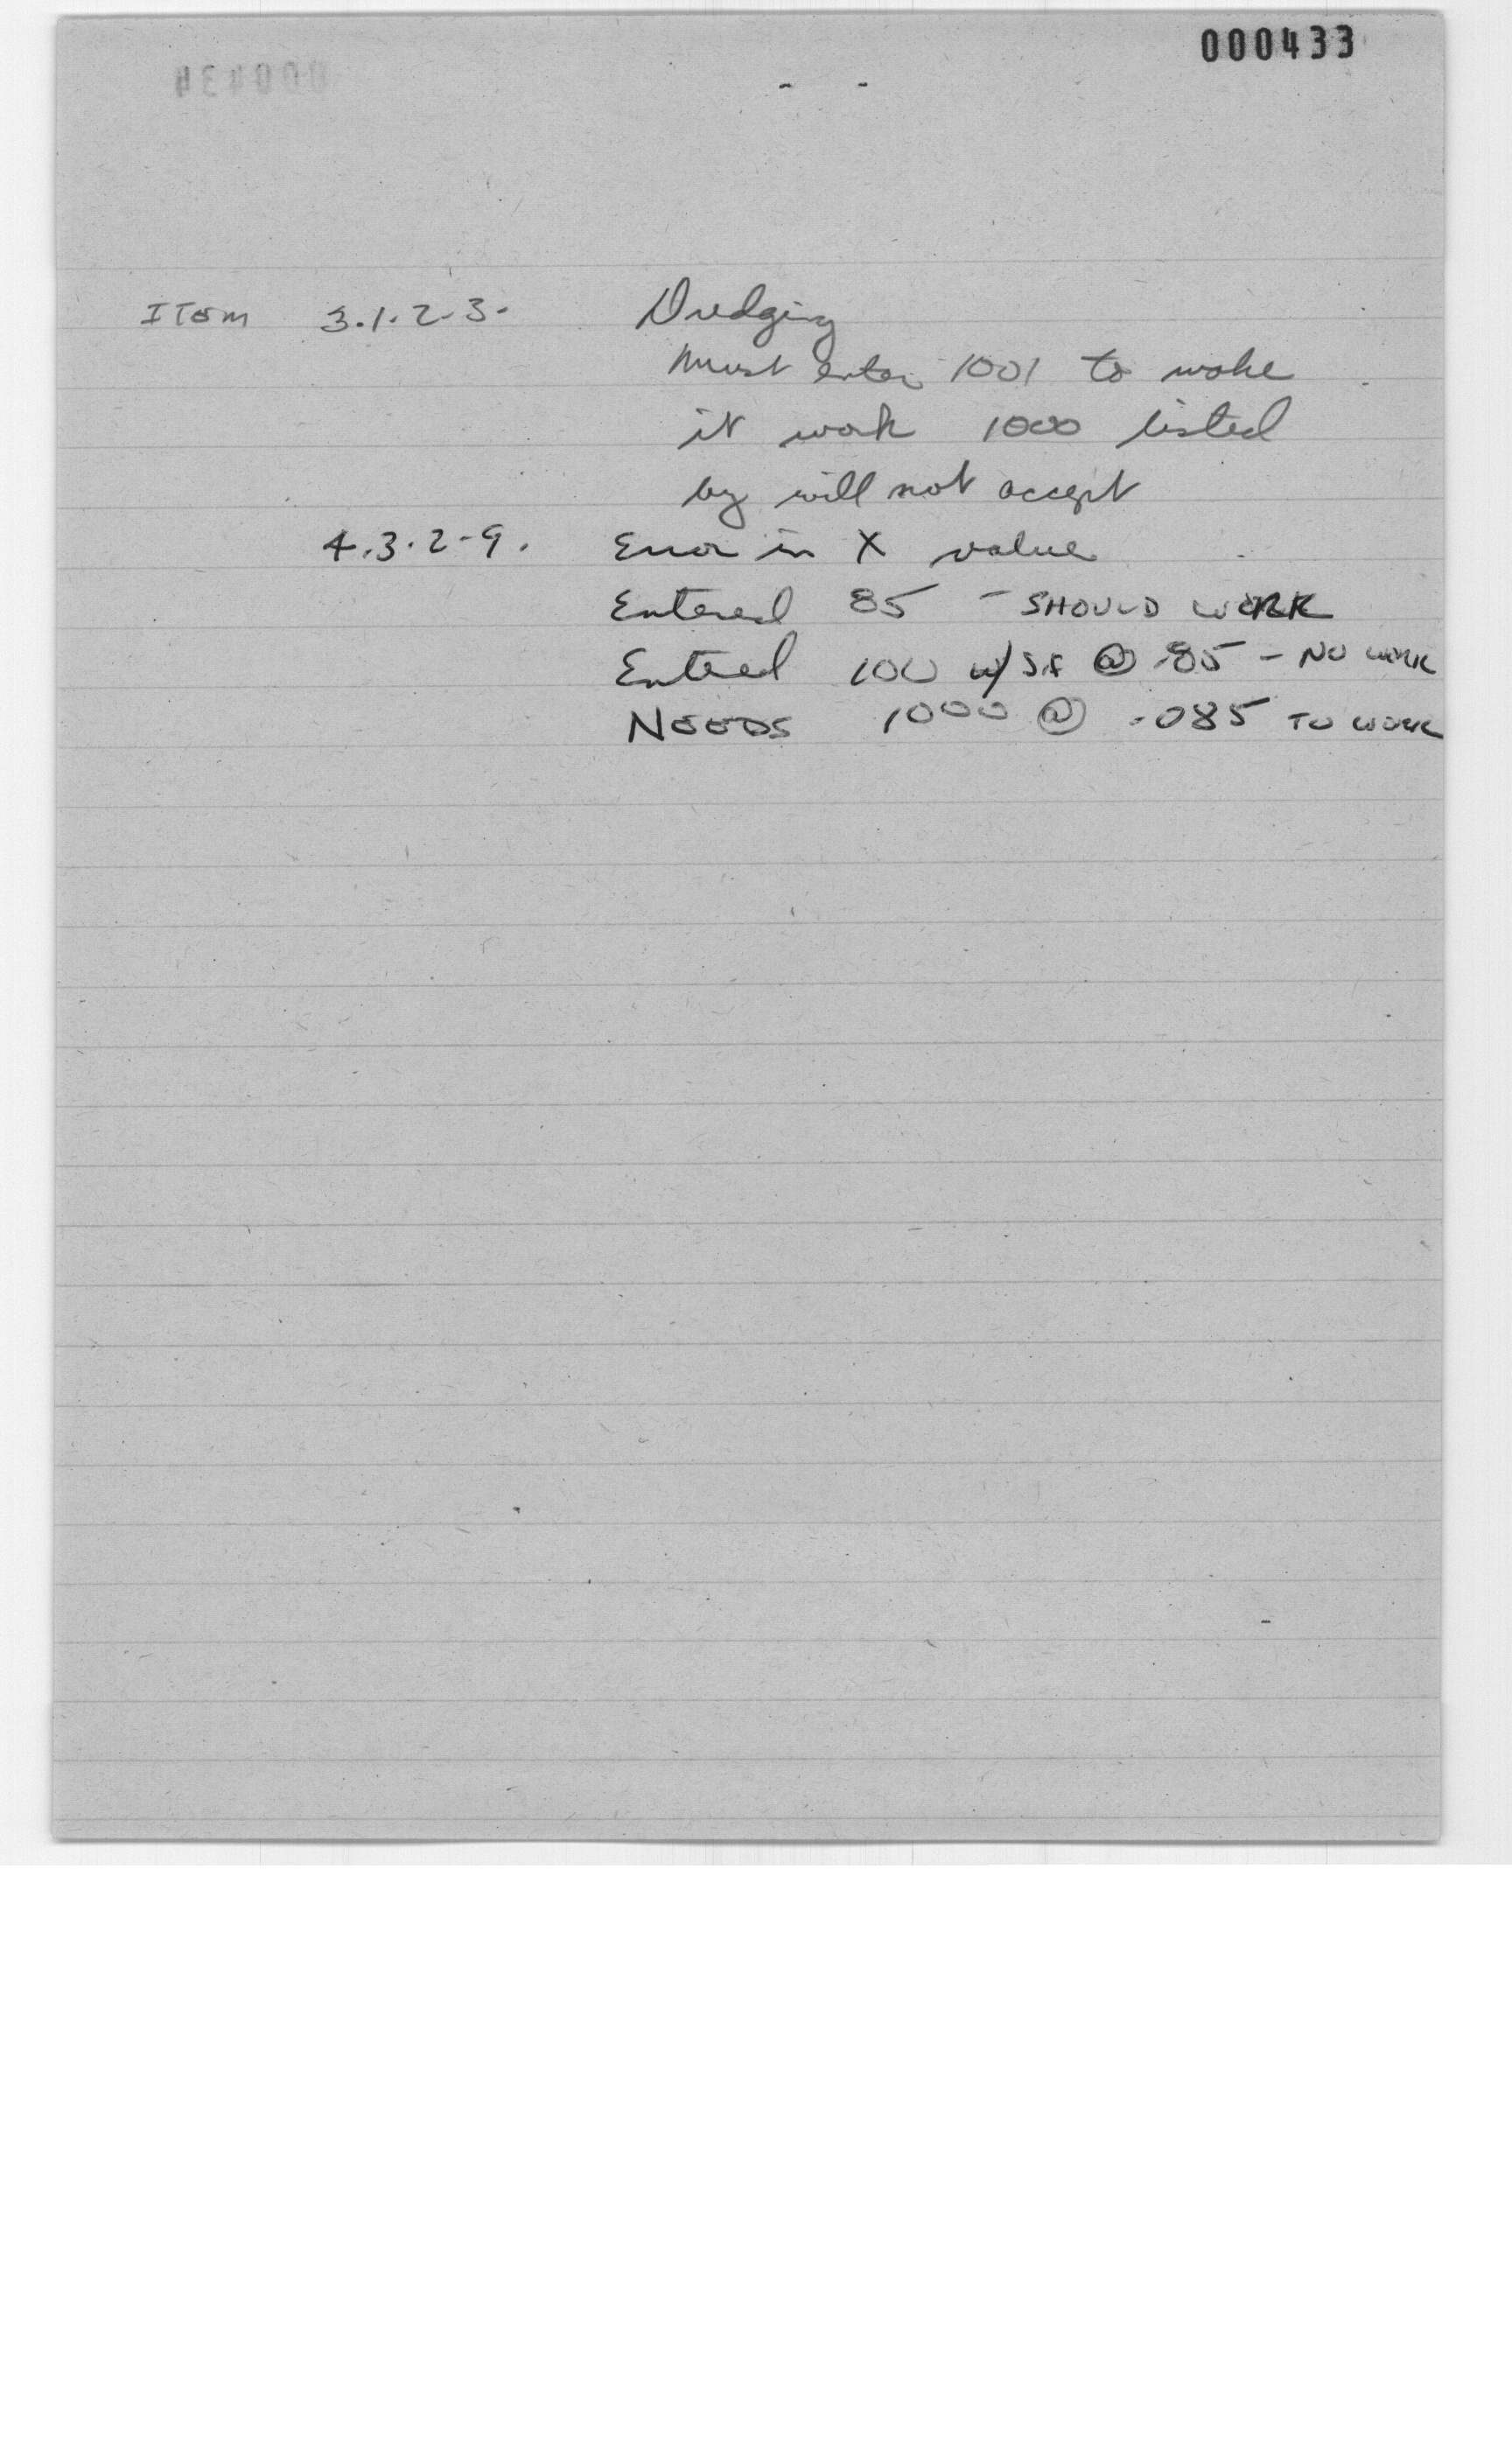 000433
ITEM 3.1.2-3. Dredging
Must enter 1001 to make
it work 1000 listed
by will not accept
4.3.2-9. Error in X value
Entered 85 - SHOULD WORK
Entered 100 w/ S.F @ .85 - NO WORK
NEEDS 1000 @ .085 TO WORK